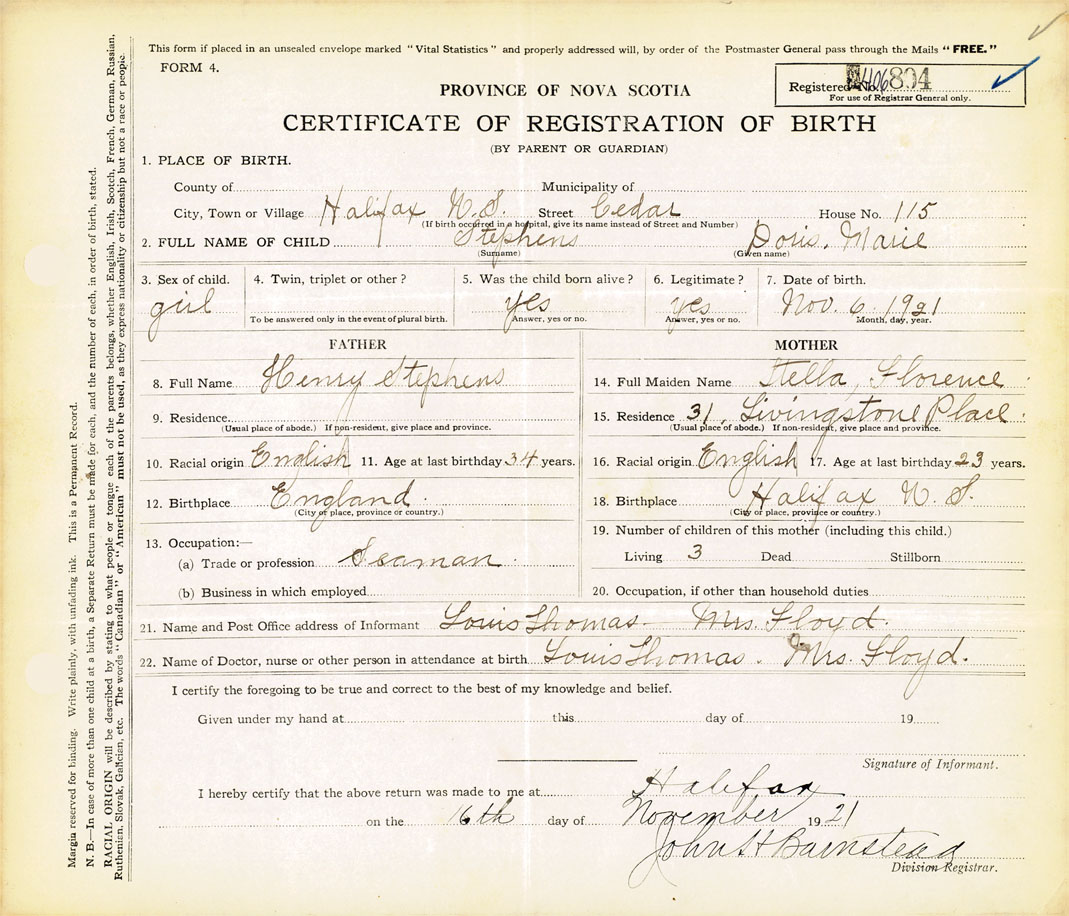 This form if placed in an unsealed envelope marked "Vital Statistics" and properly addressed will, by order of the Postmaster General pass through the Mails "FREE."
FORM 4.
Registered No. 894
For use of Registrar General only.
PROVINCE OF NOVA SCOTIA
CERTIFICATE OF REGISTRATION OF BIRTH
(BY PARENT OR GUARDIAN)
1. PLACE OF BIRTH.
County of Municipality of
City, Town or Village Halifax N.S. Street Cedar House No. 115
(If birth occurred in a hospital, give its name instead of Street and Number)
2. FULL NAME OF CHILD Stephens Doris, Marie
(Surname) (Given name)
3. Sex of child. 4. Twin, triplet or other? 5. Was the child born alive? 6. Legitimate? 7. Date of birth.
girl yes yes Nov. 6. 1921
To be answered only in the event of plural birth. Answer, yes or no. Answer, yes or no. Month, day, year.
FATHER MOTHER
8. Full Name Henry Stephens 14. Full Maiden Name Stella, Florence
9. Residence 15. Residence 31, Livingstone Place.
(Usual place of abode.) If non-resident, give place and province. (Usual place of abode.) If non-resident, give place and province.
10. Racial origin English 11. Age at last birthday 34 years. 16. Racial origin English 17. Age at last birthday 23 years.
12. Birthplace England. 18. Birthplace Halifax N. S.
(City or place, province or country.) (City or place, province or country.)
13. Occupation:— 19. Number of children of this mother (including this child.)
(a) Trade or profession Seaman Living 3 Dead Stillborn
(b) Business in which employed 20. Occupation, if other than household duties
21. Name and Post Office address of Informant Louis Thomas Mrs. Floyd.
22. Name of Doctor, nurse or other person in attendance at birth Louis Thomas. Mrs. Floyd.
I certify the foregoing to be true and correct to the best of my knowledge and belief.
Given under my hand at this day of 19
Signature of Informant.
I hereby certify that the above return was made to me at Halifax
on the 16th day of November 1921
John H Barnstead
Division Registrar.
Margin reserved for binding. Write plainly, with unfading ink. This is a Permanent Record.
N. B.—In case of more than one child at a birth, a Separate Return must be made for each, and the number of each, in order of birth, stated.
RACIAL ORIGIN will be described by stating to what people or tongue each of the parents belongs, whether English, Irish, Scotch, French, German, Russian,
Ruthenian, Slovak, Galician, etc. The words "Canadian" or "American" must not be used, as they express nationality or citizenship but not a race or people